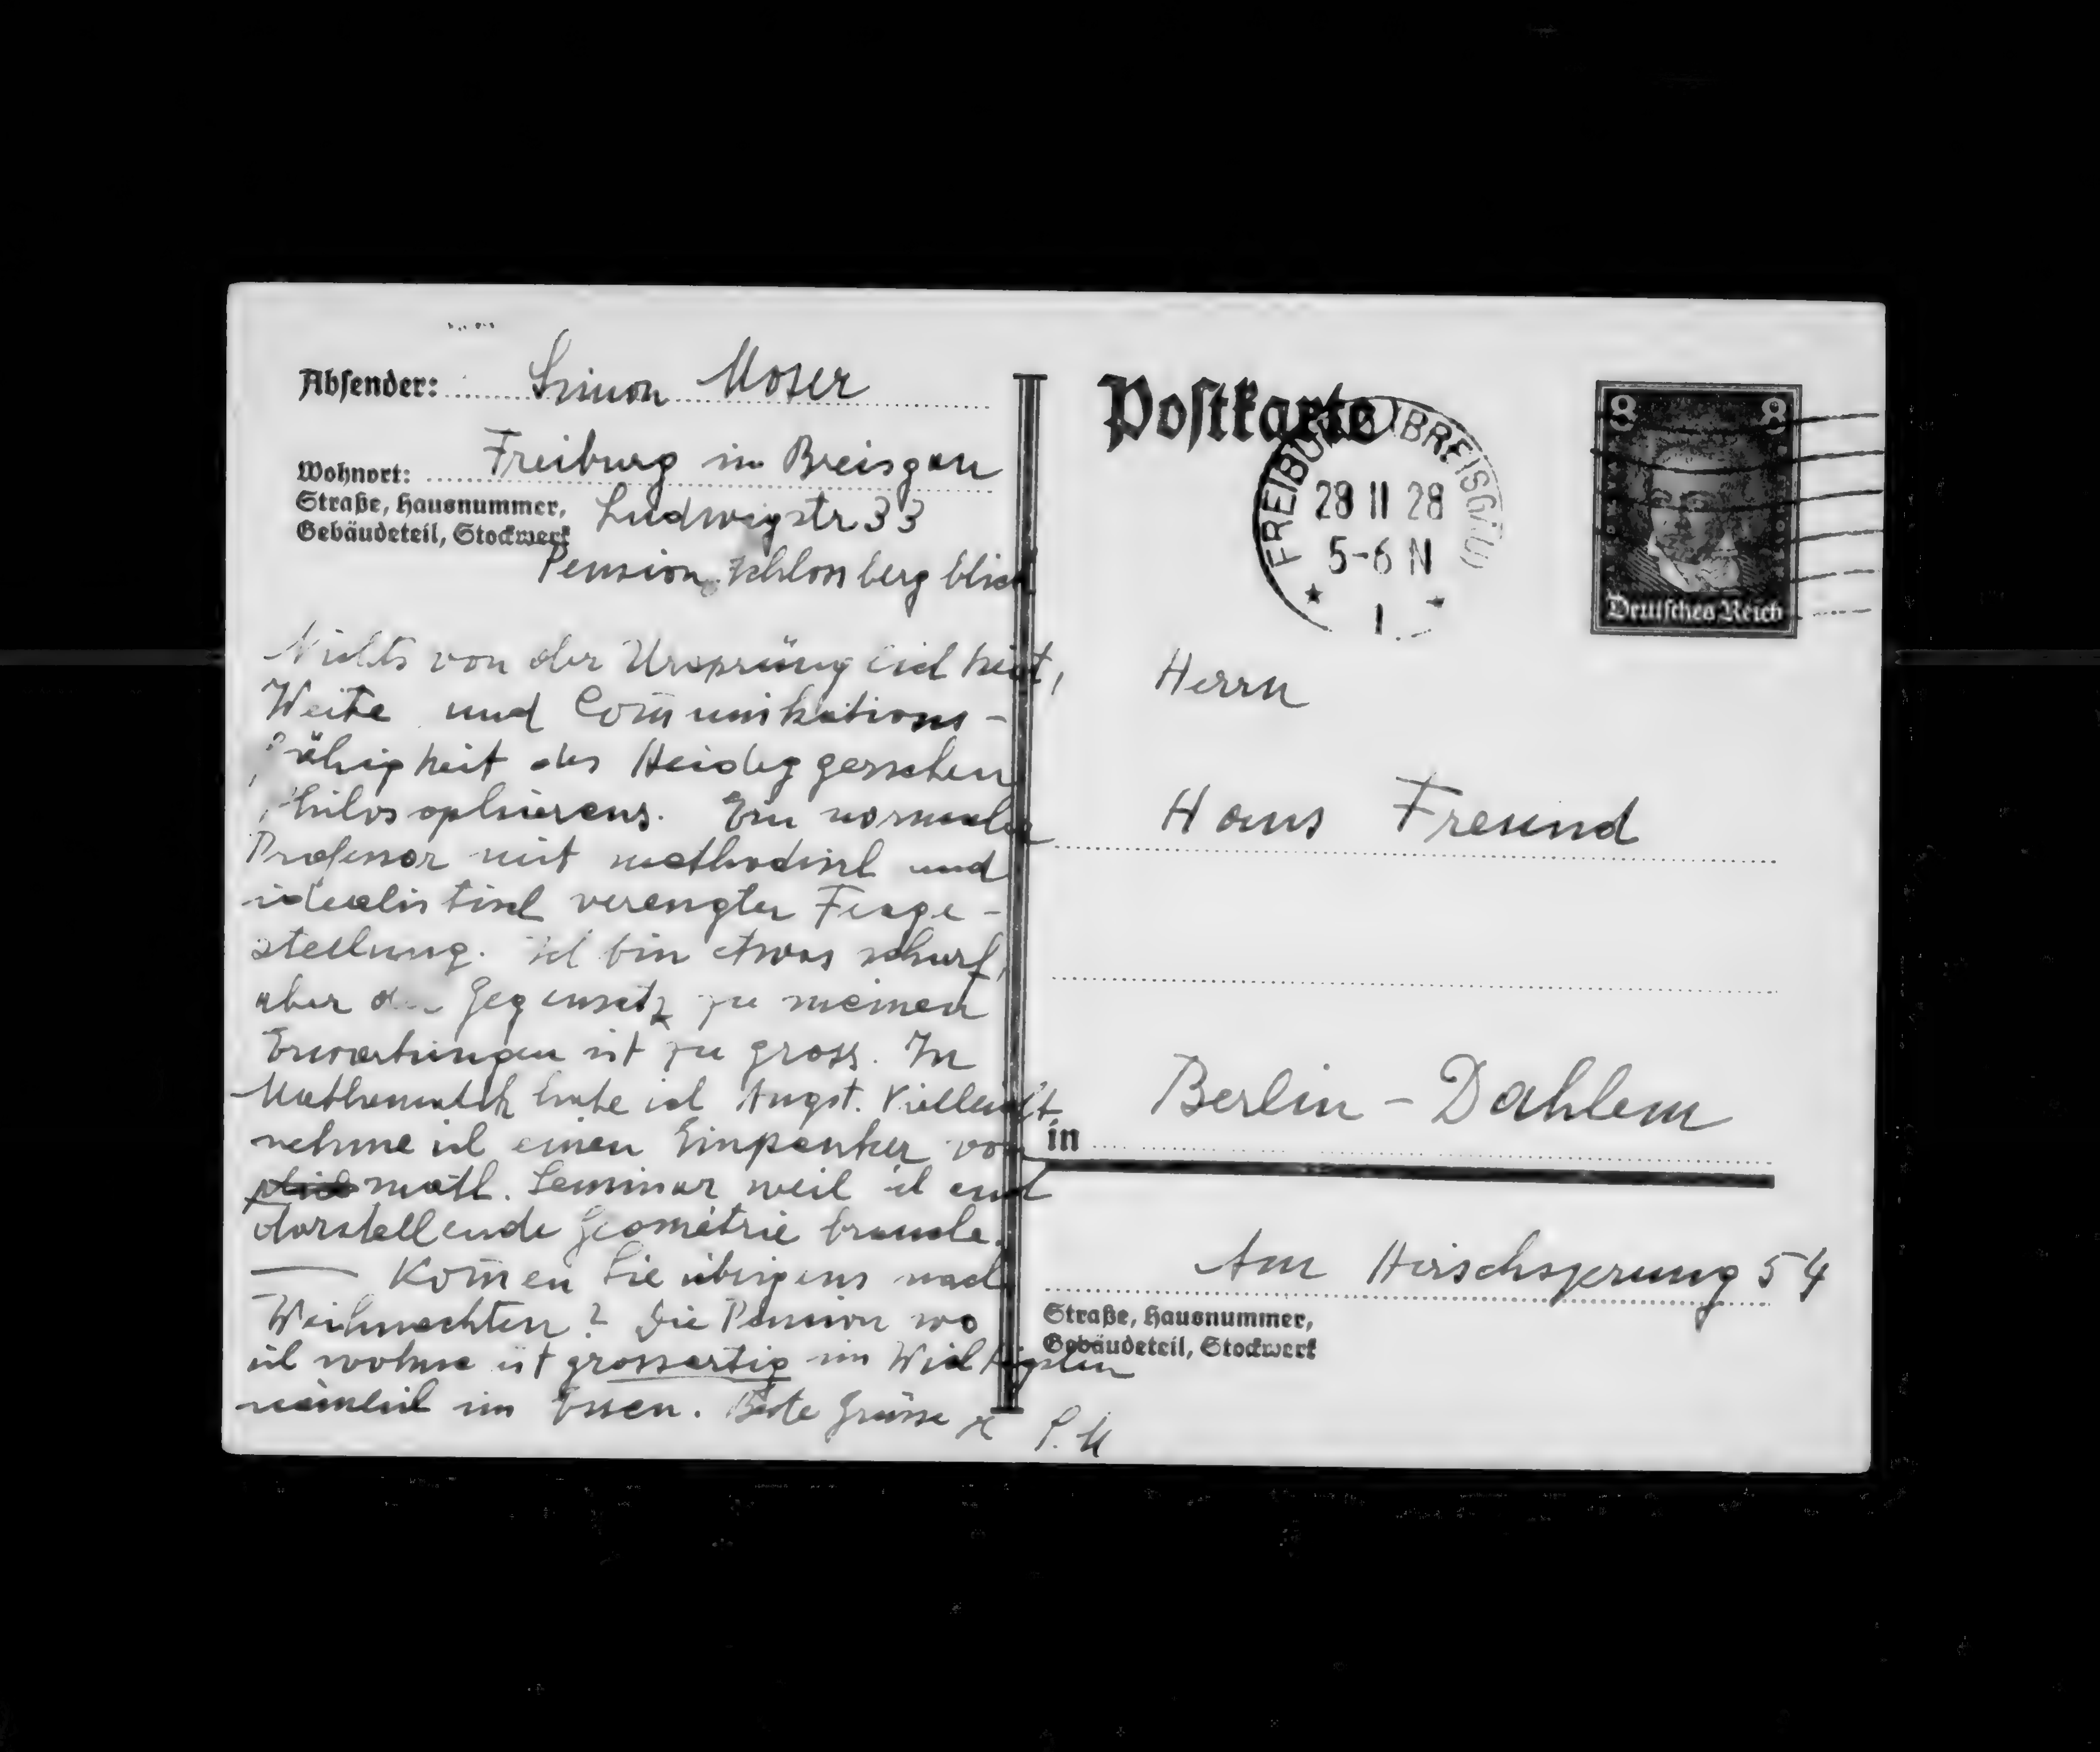 Absender: Simon Moser
Wohnort: Freiburg im Breisgau
Straße, Hausnummer, Ludwigstr 33
Gebäudeteil, Stockwerk
Pension Schlossbergblick
Nichts von der Ursprünglichkeit,
Weite und Com̅unikations-
fähigkeit des Heideggerschen
Philosophierens. Ein normaler
Professor mit methodisch und
idealistisch verengter Frage-
stellung. Ich bin etwas scharf,
aber der Gegensatz zu meinen
Erwartungen ist zu gross. In
Mathematik habe ich Angst. Vielleicht
nehme ich einen Einpauker vom
math. Seminar weil ich auch
darstellende Geometrie brauche.
— Kom̅en Sie übrigens nach
Weihnachten? Die Pension wo
ich wohne ist grossartig im Wichtigsten
nämlich im Essen. Beste Grüsse
S. M
Postkarte
FREIBURG (BREISGAU)
28 11 28
5-6 N
1
8 8
Deutsches Reich
Herrn
Hans Freund
Berlin - Dahlem
in
Am Hirschsprung 54
Straße, Hausnummer,
Gebäudeteil, Stockwerk